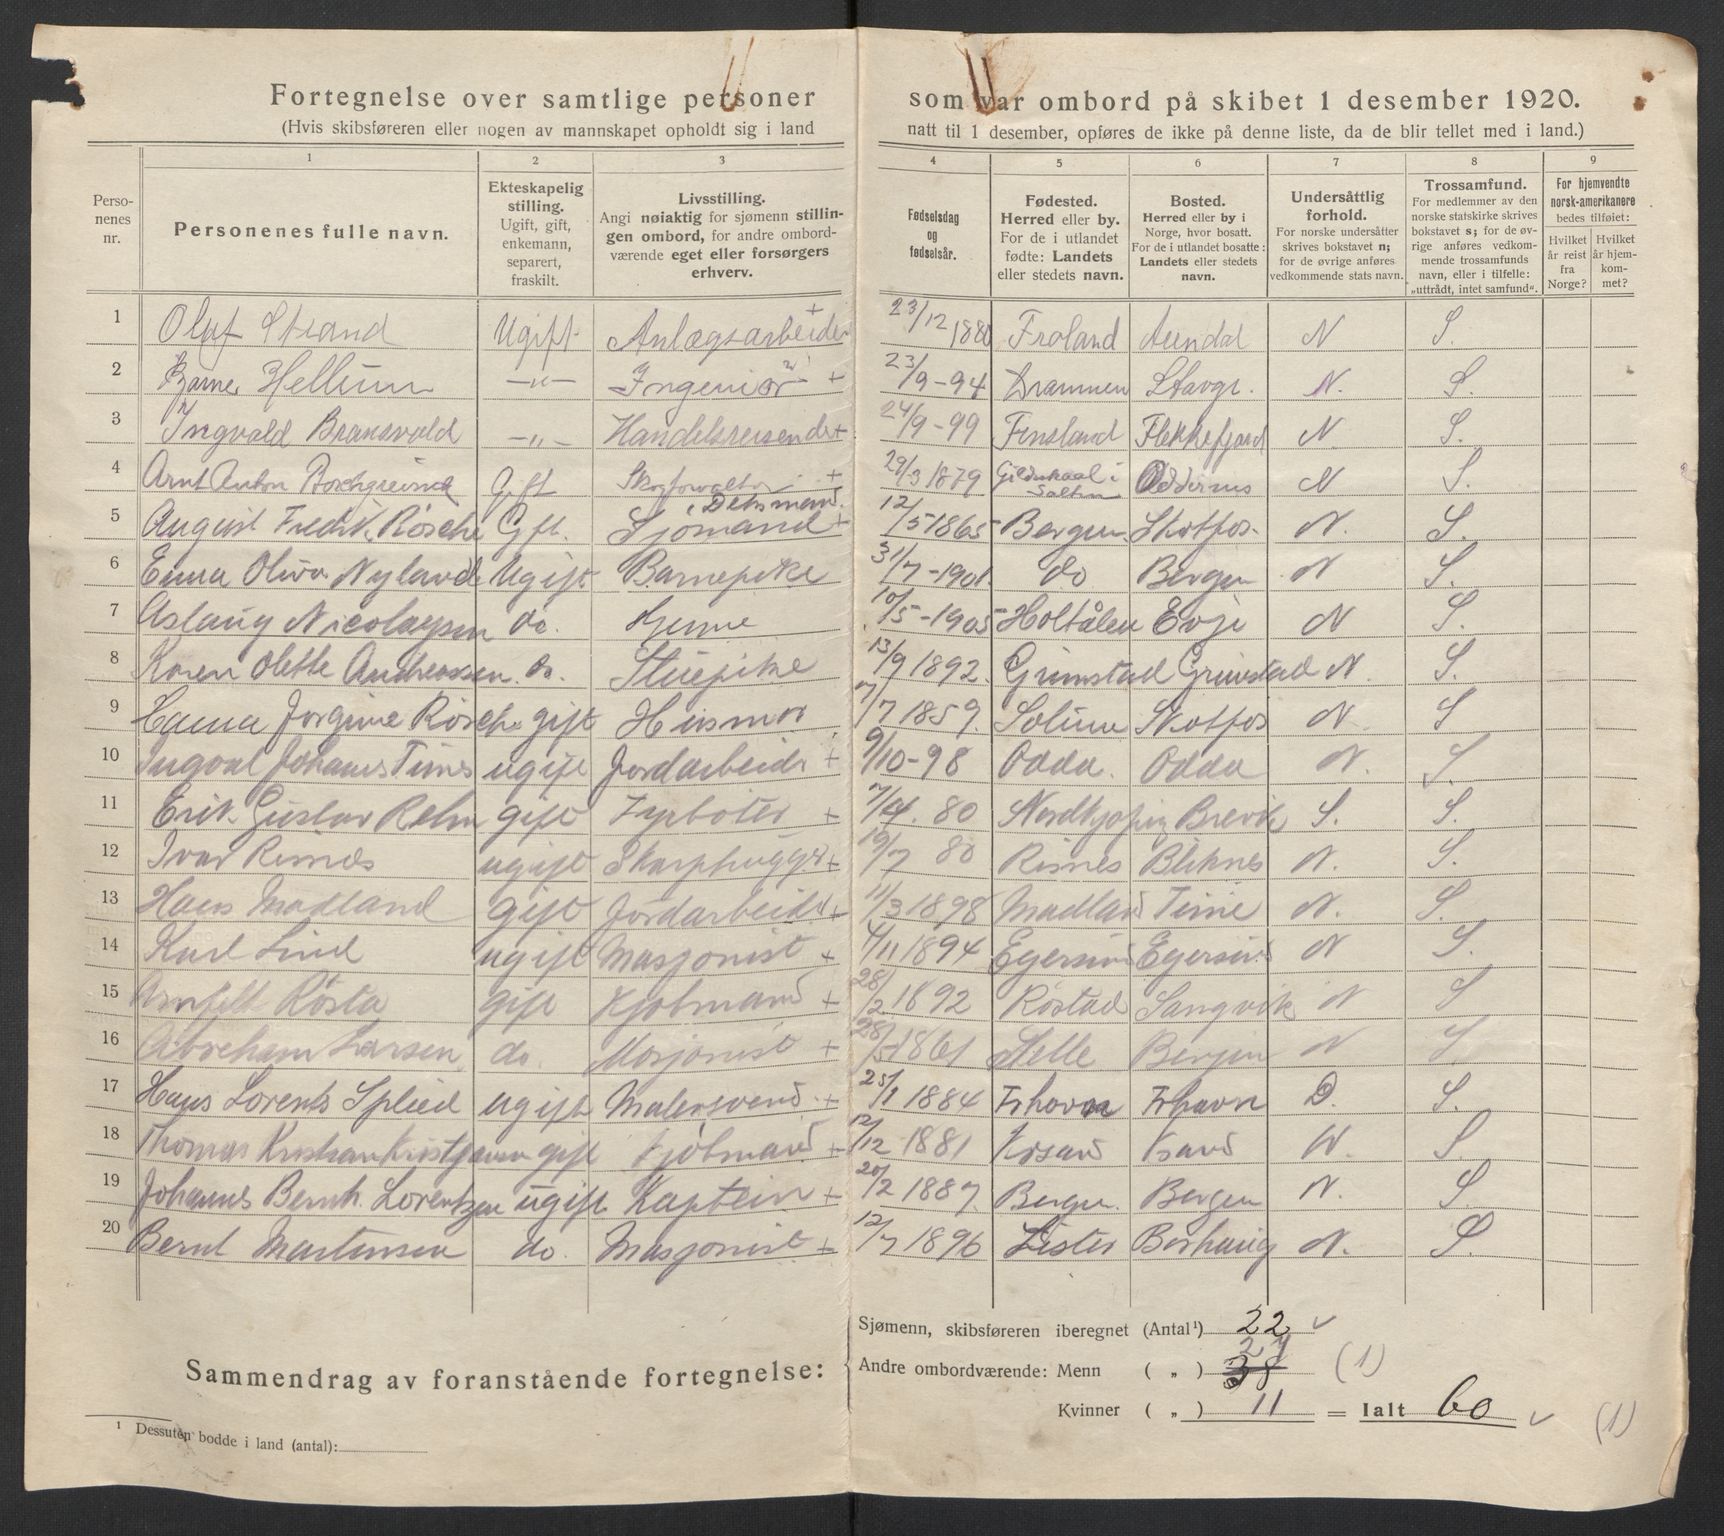 Fortegnelse over samtlige personer som var ombord på skibet 1 desember 1920.
(Hvis skibsføreren eller nogen av mannskapet opholdt sig i land natt til 1 desember, opføres de ikke på denne liste, da de blir tellet med i land.)
Personenes nr.
1
Personenes fulle navn.
2
Ekteskapelig stilling.
Ugift, gift,
enkemann,
separert,
fraskilt.
3
Livsstilling.
Angi nøiaktig for sjømenn stillingen ombord, for andre ombordværende eget eller forsørgers erhverv.
4
Fødselsdag
og
fødselsår.
5
Fødested.
Herred eller by.
For de i utlandet
fødte: Landets
eller stedets navn.
6
Bosted.
Herred eller by i
Norge, hvor bosatt.
For de i utlandet bosatte:
Landets eller stedets
navn.
7
Undersåttlig
forhold.
For norske undersåtter
skrives bokstavet n;
for de øvrige anføres
vedkommende stats navn.
8
Trossamfund.
For medlemmer av den
norske statskirke skrives
bokstavet s; for de øvrige anføres vedkommende trossamfunds
navn, eller i tilfelle:
„uttrådt, intet samfund".
9
For hjemvendte
norsk-amerikanere
bedes tilføiet:
Hvilket år reist fra Norge?
Hvilket år hjemkommet?
1 Olaf Strand Ugift Anlægsarbeider + 23/12 1880 Froland Arendal N S.
2 Bjarne Hellum —„— Ingeniør + 23/9-94 Drammen Stavgr. N. S.
3 Ingvald Brandsvold —„— Handelsreisende + 24/9-99 Finsland Flekkefjord N S.
4 Arnt Anton Borchgrevink Gift Skogforvalter + 29/3 1879 Gildeskaal i Salten Oddernes N S.
5 August Fredrik Rösche Gft. Sjömand, Deksmand + 12/5 1865 Bergen Skotfos. N. S.
6 Emma Oliva Nyland Ugift Barnepike 31/7-1901 do Bergen N S.
7 Aslaug Nicolaysen do. Hjemme 10/5-1905 Holtålen Evje N S.
8 Karen Olette Andreassen do. Stuepike 13/9 1892. Grimstad Grimstad N. S.
9 Hanna Jorgine Rösche gift Husmor 7/7 1859. Solum Skotfos N. S
10 Ingval Johannes Tines ugift Jordarbeider + 9/10-98 Odda. Odda N. S.
11 Erik Gustav Rehn gift Fyrbøter + 7/4. 80 Nordkjøping Brevik S. S.
12 Ivar Risnes ugift + 19/7 80 Risnes Bliknes N. S.
13 Hans Madland gift Jordarbeider + 11/3 1898 Madland Time N. S.
14 Karl Lind ugift Masjonist + 4/11 1894 Egersund Egersund N S.
15 Arnfelt Rösta gift Kjöbmand + 28/2 1892 Röstad Sangvik N S
16 Abraham Larsen do. Masjonist + 28/5 1861 Bergen N S
17 Hans Lorents Splied ugift Malersvend + 25/1 1884 Frhavn Frhavn D. S.
18 Thomas Kristian Kristjansen gift Kjöbmand + 12/12 1881 Krsand Ksand N. S
19 Johannes Bernh. Lorentzen ugift Kaptein + 20/2 1887. Bergen. Bergen N. S
20 Bernt Martensen do. Masjonist + 12/7 1896 Lister Borhaug N. S.
Sammendrag av foranstående fortegnelse:
Sjømenn, skibsføreren iberegnet (Antal¹) 22
27
Andre ombordværende: Menn ( „ ) 38 (1)
Kvinner ( „ ) 11 = Ialt 60 (1)
¹ Dessuten bodde i land (antal):